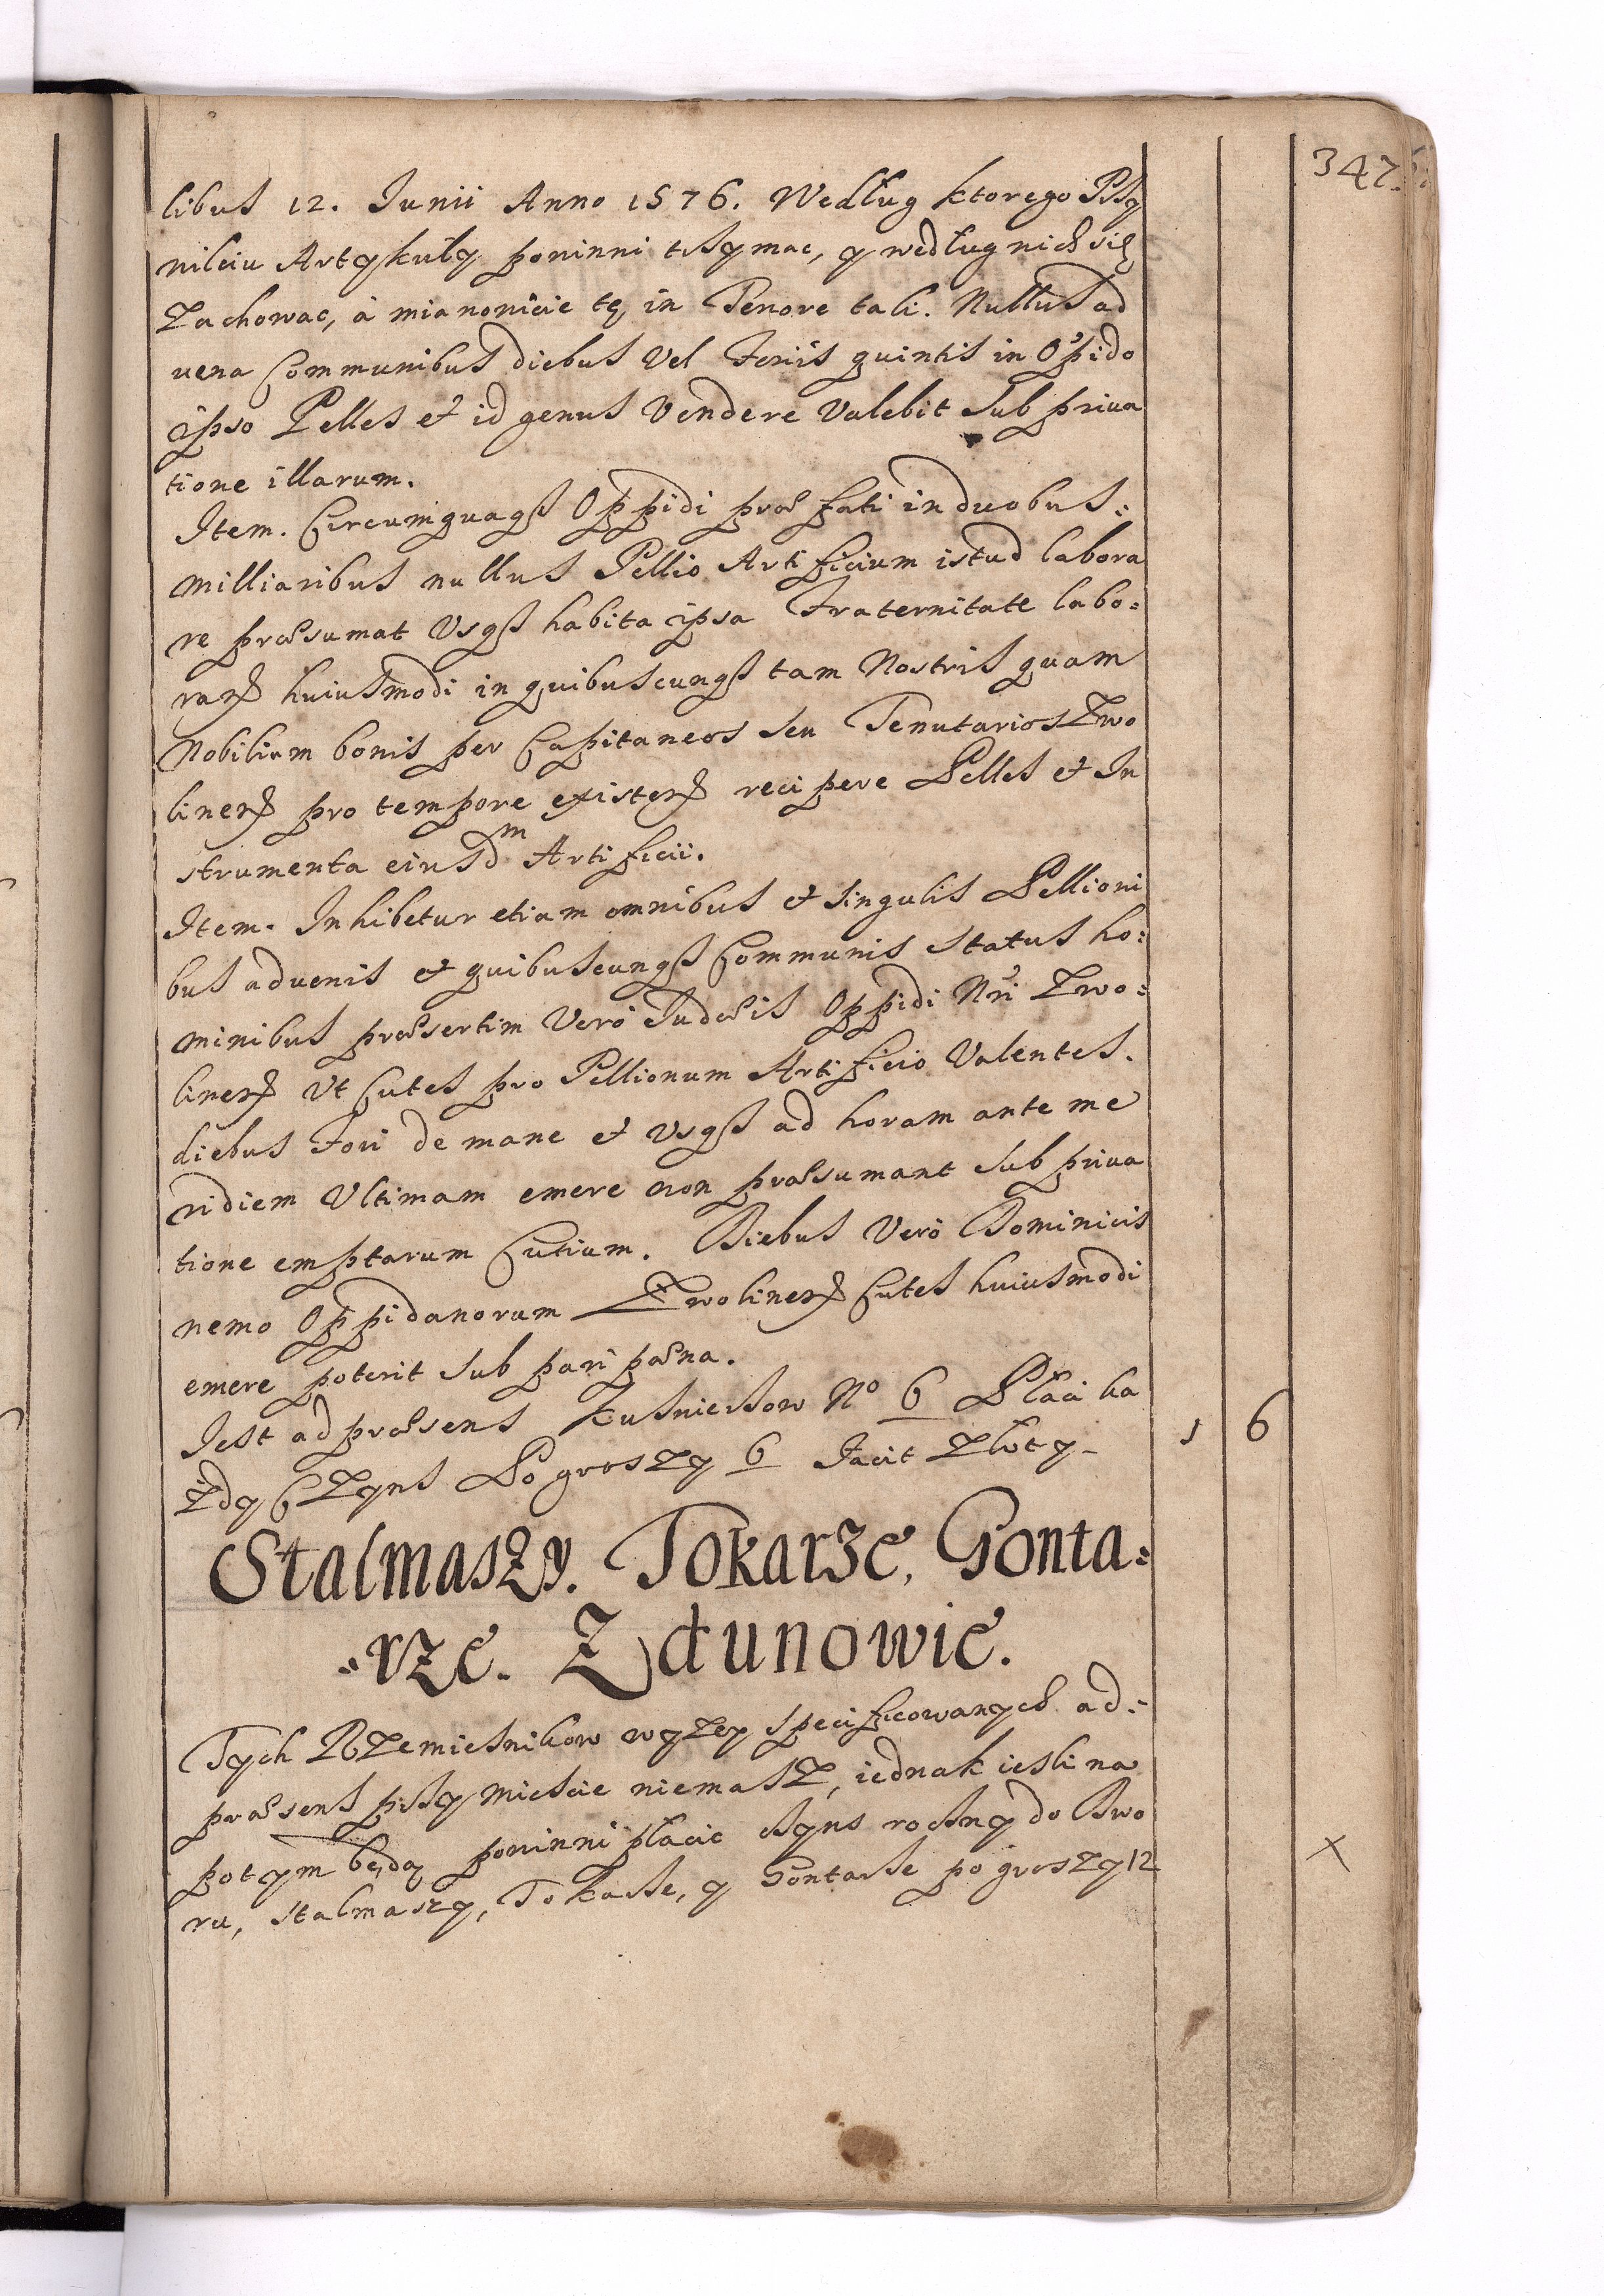 347.
libus 12. Junii Anno 1576. Według ktorego Przy
wileiu Artykuły powinni trzymac, y według nich się
Zachowac, à mianowicie tę in Tenore tali. Nullus ad
uena Communibus diebus Vel Feriis quintis in Oppido
ipso Pelles et id genus Vendere Valebit sub priua
tione illarum.
Item. Circumquaq3 Oppidi præfati in duobus:
milliaribus nullus Pellio Artificium istud labora
re præsumat Vsq3 habita ipsa Fraternitate labo:
ran̄ huiusmodi in quibuscunq3 tam Nostris quam
Nobilium bonis per Capitaneos seu Tenutarios Zwo
linen̄ pro tempore existen̄ recipere Pelles et In
strumenta eiusdm Artificii.
Item. Inhibetur etiam omnibus et singulis Pellioni
bus aduenis et quibuscunq3 Communis status ho:
minibus præsertim Verò Judæis Oppidi Nri Zwo:
linen̄ Vt Cutes pro Pellionum Artificio Valentes.
diebus Fori de mane et Vsq3 ad horam ante me
ridiem Vltimam emere non præsumant sub priua
tione emptarum Cutium. Diebus Verò Dominicis
nemo Oppidanorum Zwolinen̄ Cutes huiusmodi
emere poterit sub pari pæna.
Jest ad præsens Kusnierzow No 6 Płaci ka
żdy Czyns Po groszy 6 Facit Złoty - 1 6
Stalmaszy. Tokarze, Gonta:
:rze. Zdunowie.
Tych Rzemiesnikow wyzey specificowanych ad:
præsens przy Miescie niemasz, iednak iesli na
potym będą powinni płacic czyns roczny do Dwo
ru, stalmaszy, Tokarze, y Gontarze po groszy 12 X